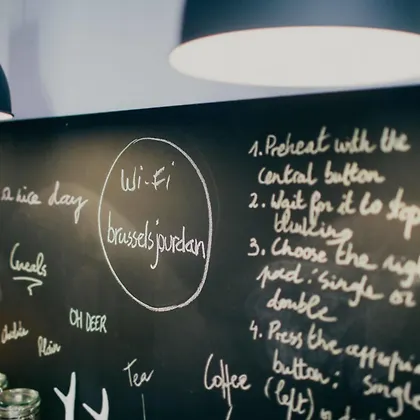 a nice day
Wi-Fi
brusselsjourdan
Cereals
OH DEER
Plain
Tea
Coffee
1. Preheat with the
central button
2. Wait for it to stop
blinking
3. Choose the right
pad: single or
double
4. Press the
button: single
(left)